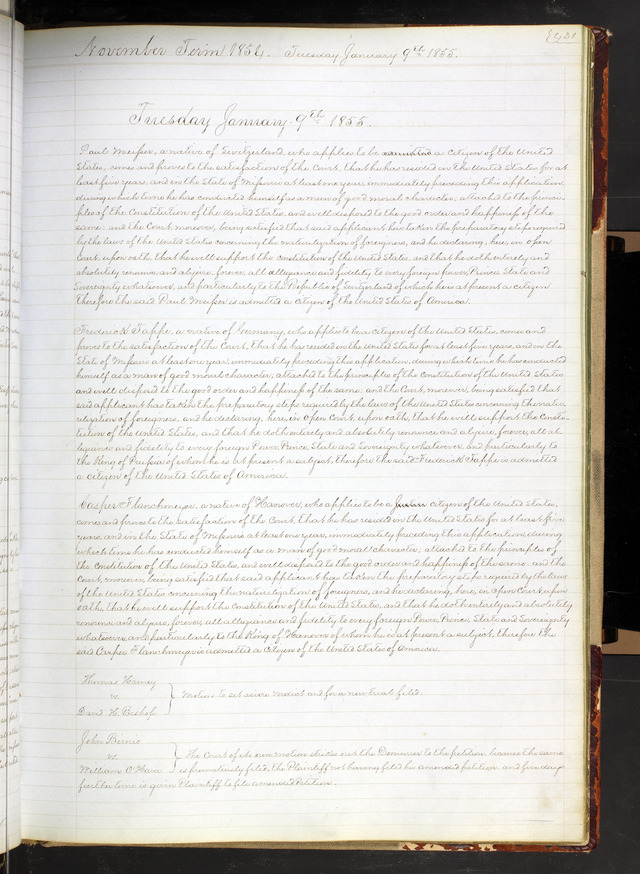 November Term 1854. Tuesday January 9th 1855.
Tuesday January 9th 1855.
Paul Meifser, a native of Switzerland, who applies to be a citizen of the United
States, comes and proves to the satisfaction of the Court, that he has resided in the United States for at
least five years, and in the State of Missouri at least one year, immediately preceeding this application,
during which time he has conducted himself as a man of good moral character, attached to the princi-
ples of the Constitution of the United States, and well disposed to the good order and happiness of the
same: and the Court, moreover, being satisfied that said applicant has taken the preparatory steps required
by the laws of the United States concerning the naturalization of foreigners, and he declaring, here, in open
Court, upon oath, that he will support the Constitution of the United States, and that he doth entirely and
absolutely renounce and abjure, forever, all allegiance and fidelity to every foreign Power, Prince, State and
Sovereignty whatsoever, and particularly to the Republic of Switzerland of which he is at present a citizen
therefore the said Paul Meifser is admitted a citizen of the United States of America.
Frederick Tappe, a native of Germany, who applies to be a citizen of the United States, comes and
proves to the satisfaction of the Court, that he has resided in the United States for at least five years, and in the
State of Missouri at least one year, immediately preceding this application, during which time he has conducted
himself as a man of good moral character, attached to the principles of the Constitution of the United States
and well disposed to the good order and happiness of the same. and the Court, moreover, being satisfied that
said applicant has taken the preparatory steps required by the laws of the United States concerning the natu-
ralization of foreigners, and he declaring, here, in open Court, upon oath, that he will support the Consti-
tution of the United States, and that he doth entirely and absolutely renounce and abjure, forever, all al-
legiance and fidelity to every foreign Power, Prince, State and Sovereignty whatsoever, and particularly to
the King of Prussia of whom he is at present a subject, therefore the said Frederick Tappe is admitted
a citizen of the United States of America.
Casper Flanchmeyer, a native of Hanover, who applies to be a citizen of the United States,
comes and proves to the satisfaction of the Court, that he has resided in the United States for at least five
years, and in the State of Missouri at least one year, immediately preceding this application, during
which time he has conducted himself as a man of good moral character, attached to the principles of
the Constitution of the United States, and well disposed to the good order and happiness of the same. and the
Court, moreover, being satisfied that said applicant has taken the preparatory steps required by the laws
of the United States concerning the naturalization of foreigners, and he declaring, here, in open Court upon
oath, that he will support the Constitution of the United States, and that he doth entirely and absolutely
renounce and abjure, forever, all allegiance and fidelity to every foreign Power, Prince, State and Sovereignty
whatsoever, and particularly to the King of Hanover of whom he is at present a subject, therefore the
said Casper Flanchmeyer is admitted a Citizen of the United States of America.
Thomas Harney
vs.
David H. Bishop
Motion to set aside verdict and for a new trial filed.
John Bernie
vs
William O'Hara
The Court of its own motion strikes out the Demurrer to the petition because the same
is prematurely filed, the Plaintiff not having filed his amended petition and five days
further time is given Plaintiff to file amended Petition.